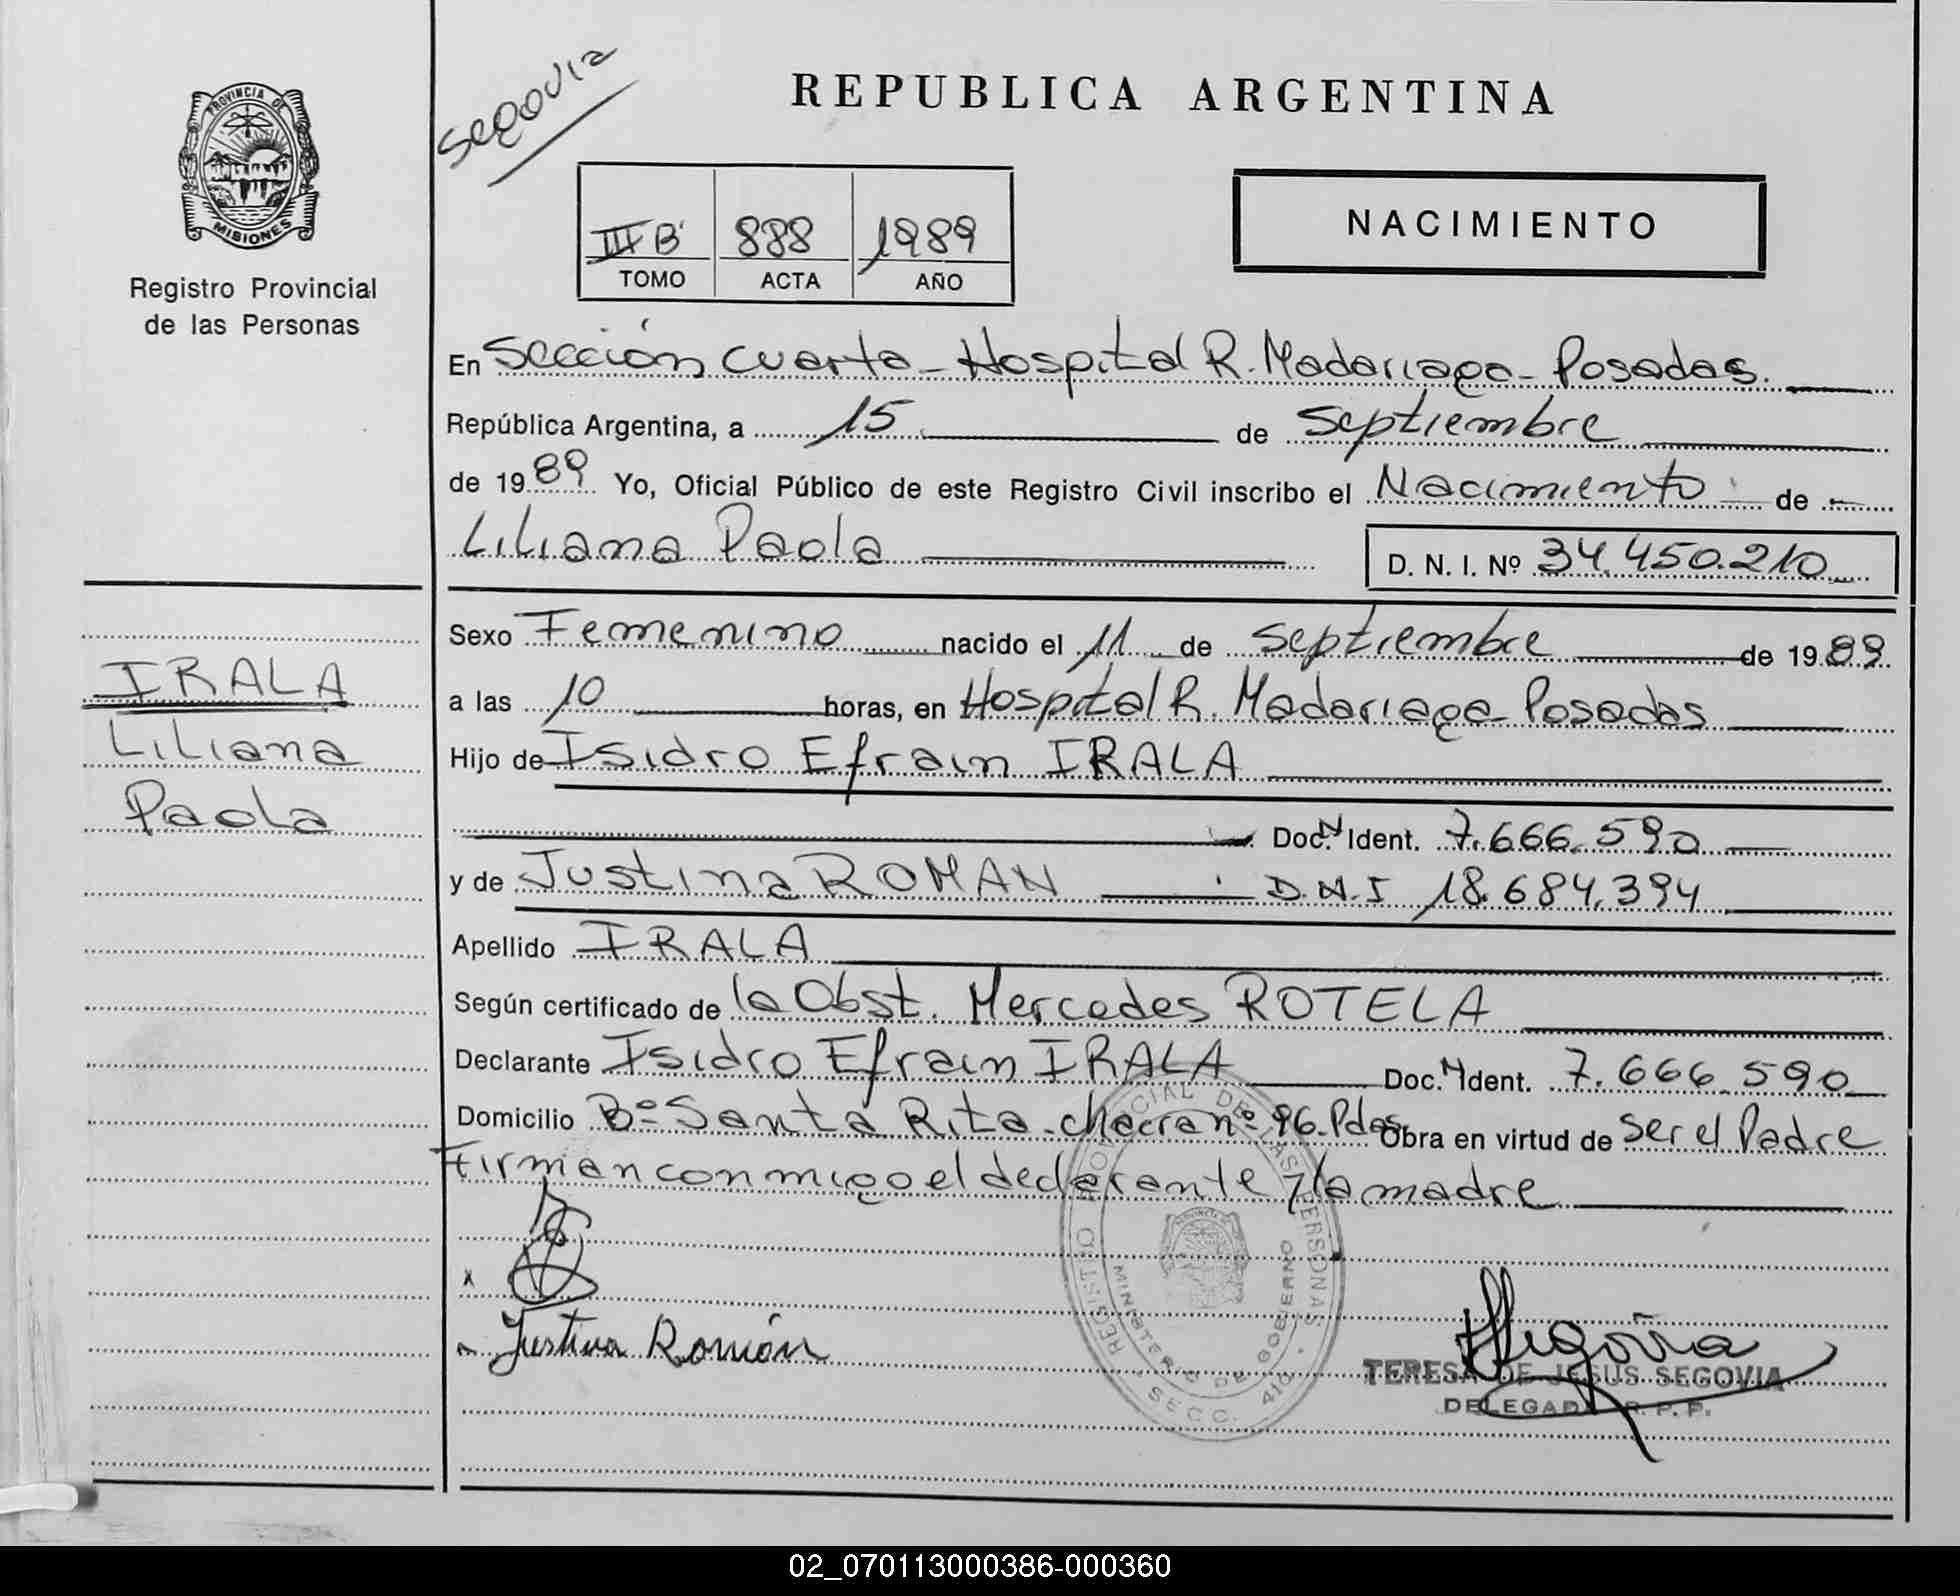 Segovia
REPUBLICA ARGENTINA
PROVINCIA DE
MISIONES
Registro Provincial
de las Personas
III B' 888 1989
TOMO ACTA AÑO
NACIMIENTO
En Sección Cuarta - Hospital R. Madariaga - Posadas.
República Argentina, a 15 de Septiembre
de 1989 Yo, Oficial Público de este Registro Civil inscribo el Nacimiento de
Liliana Paola D. N. I. Nº 34.450.210
Sexo Femenino nacido el 11 de Septiembre de 1989.
a las 10 horas, en Hospital R. Madariaga Posadas
Hijo de Isidro Efrain IRALA
Doc. N Ident. 7.666.590
y de Justina ROMAN D.N.I 18.684.394
Apellido IRALA
Según certificado de la Obst. Mercedes ROTELA
Declarante Isidro Efrain IRALA Doc. N Ident. 7.666.590
Domicilio Bº Santa Rita - chacra nº 96. Pdas. Obra en virtud de ser el Padre
Firman conmigo el declarante y la madre
IRALA
Liliana
Paola
x
Justina Román
REGISTRO PROVINCIAL DE LAS PERSONAS
MINISTERIO DE GOBIERNO
SECC. 4ta
Segovia
TERESA DE JESUS SEGOVIA
DELEGADA R. P. P.
02_070113000386-000360